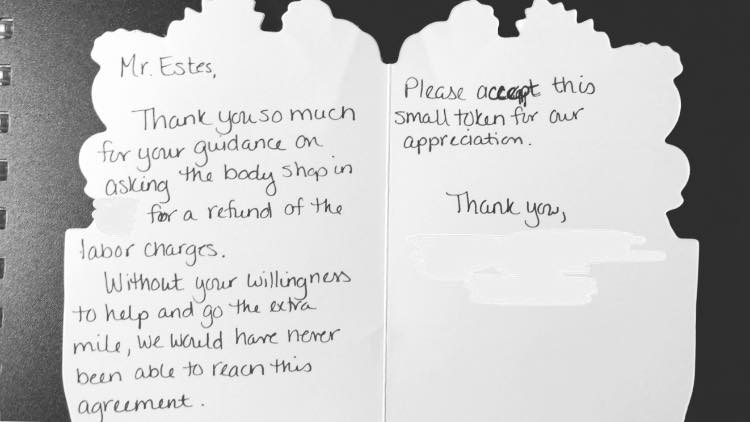 Mr. Estes,
Thank you so much
for your guidance on
asking the body shop in
for a refund of the
labor charges.
Without your willingness
to help and go the extra
mile, we would have never
been able to reach this
agreement.
Please accept this
small token for our
appreciation.
Thank you,